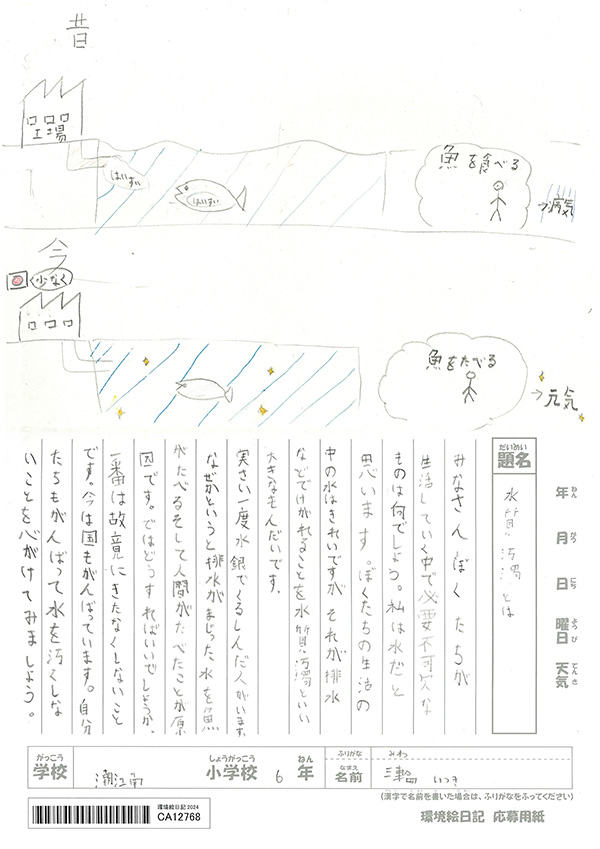 昔
工場
はいすい
はいすい
魚を食べる
→病気
今
少なく
魚をたべる
→元気
年 ねん
月 がつ
日 にち
曜日 ようび
天気 てんき
題名 だいめい
水質汚濁とは
みなさんぼくたちが
生活していく中で必要不可欠な
ものは何でしょう。私は水だと
思います。ぼくたちの生活の
中の水はきれいですがそれが排水
などでけがれることを水質汚濁といい
大きなもんだいです。
実さい一度水銀でくるしんだ人がいます。
なぜかというと排水がまじった水を魚
がたべるそして人間がたべたことが原
因です。ではどうすればいいでしょうか。
一番は故意にきたなくしないこと
です。今は国もがんばっています。自分
たちもがんばって水を汚くしな
いことを心がけてみましょう。
学校 がっこう
潮江南
小学校 しょうがっこう
6
年 ねん
ふりがな
みわ
名前 なまえ
いつき
(漢字で名前を書いた場合は、ふりがなをふってください)
環境絵日記 2024
CA12768
環境絵日記 応募用紙